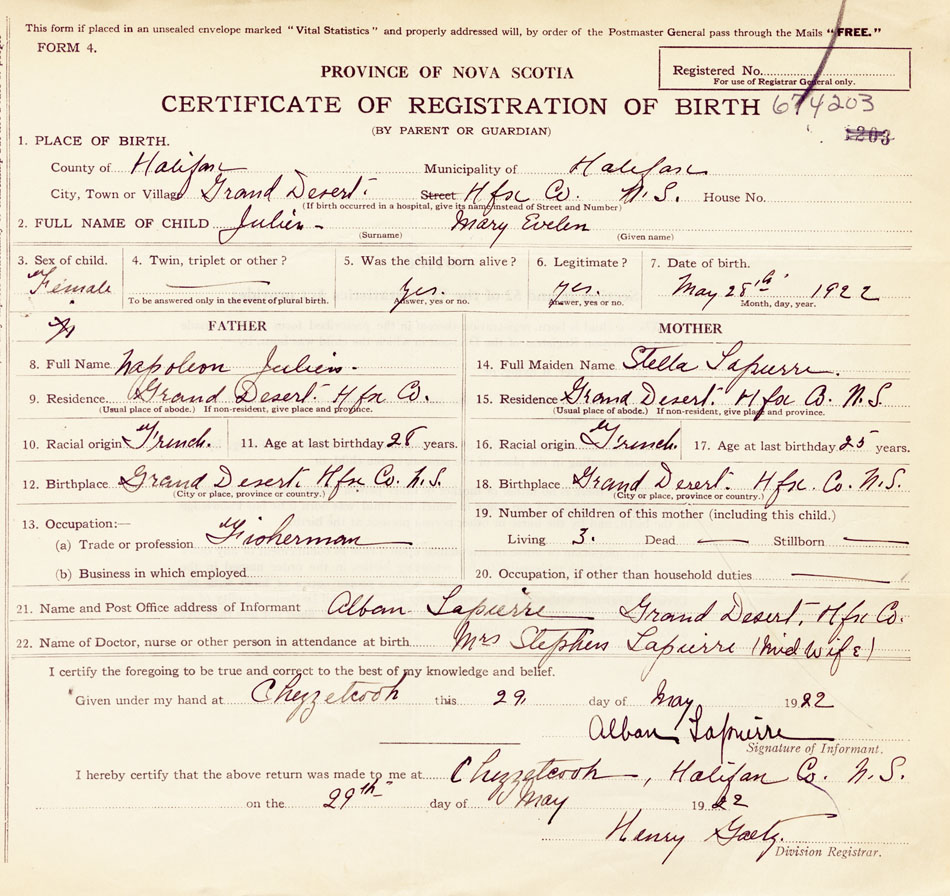 This form if placed in an unsealed envelope marked "Vital Statistics" and properly addressed will, by order of the Postmaster General pass through the Mails "FREE."
FORM 4.
PROVINCE OF NOVA SCOTIA
Registered No.
For use of Registrar General only.
CERTIFICATE OF REGISTRATION OF BIRTH 674203
(BY PARENT OR GUARDIAN)
1203
1. PLACE OF BIRTH.
County of Halifax Municipality of Halifax
City, Town or Village Grand Desert. Street Hfx Co. N.S. House No.
(If birth occurred in a hospital, give its name instead of Street and Number)
2. FULL NAME OF CHILD Julien - Mary Evelen
(Surname) (Given name)
3. Sex of child. 4. Twin, triplet or other? 5. Was the child born alive? 6. Legitimate? 7. Date of birth.
Female yes. yes. May 28th 1922
To be answered only in the event of plural birth. Answer, yes or no. Answer, yes or no. Month, day, year.
FATHER MOTHER
8. Full Name Napoleon Julien - 14. Full Maiden Name Stella Lapierre.
9. Residence Grand Desert Hfx Co. 15. Residence Grand Desert. Hfx Co. N.S.
(Usual place of abode.) If non-resident, give place and province. (Usual place of abode.) If non-resident, give place and province.
10. Racial origin French. 11. Age at last birthday 28 years. 16. Racial origin French. 17. Age at last birthday 25 years.
12. Birthplace Grand Desert. Hfx Co. N.S. 18. Birthplace Grand Desert. Hfx. Co. N.S.
(City or place, province or country.) (City or place, province or country.)
13. Occupation:— 19. Number of children of this mother (including this child.)
(a) Trade or profession Fisherman Living 3. Dead — Stillborn —
(b) Business in which employed 20. Occupation, if other than household duties
21. Name and Post Office address of Informant Alban Lapierre Grand Desert, Hfx Co.
22. Name of Doctor, nurse or other person in attendance at birth. Mrs Stephen Lapierre (Mid Wife)
I certify the foregoing to be true and correct to the best of my knowledge and belief.
Given under my hand at Chezzetcook this 29 day of May 1922
Alban Lapierre
Signature of Informant.
I hereby certify that the above return was made to me at Chezzetcook, Halifax Co. N.S.
on the 29th day of May 1922
Henry Gaetz.
Division Registrar.